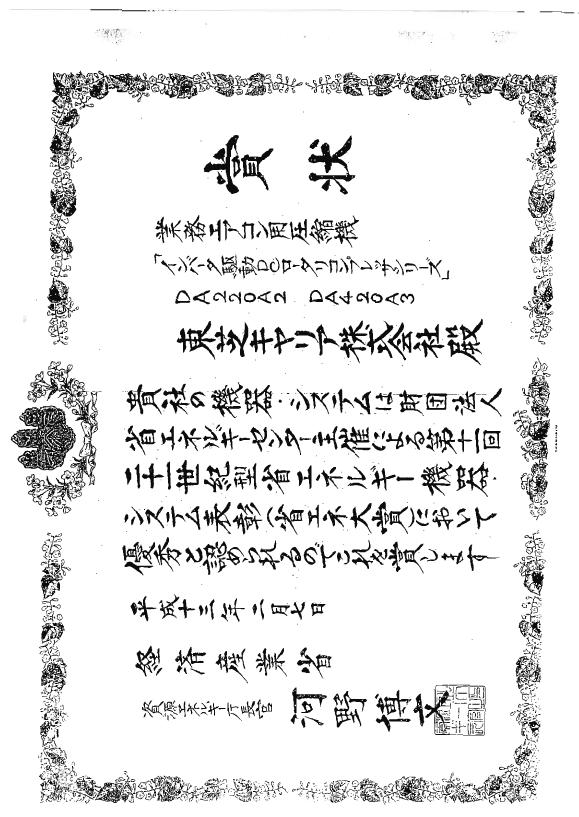 賞状
業務エアコン用圧縮機
「インバータ駆動DCロータリコンプレッサシリーズ」
DA220A2 DA420A3
東芝キヤリア株式会社殿
貴社の機器・システムは財団法人
省エネルギーセンター主催による第十一回
二十一世紀型省エネルギー機器・
システム表彰(省エネ大賞)において
優秀と認められるのでこれを賞します
平成十三年二月七日
経済産業省
資源エネルギー庁長官 河野博文